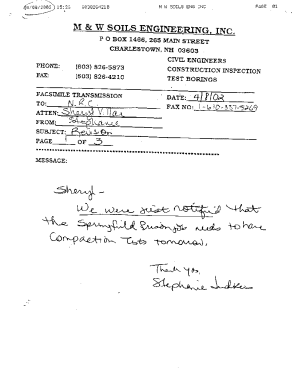 04/08/2002 15:52 6038264210 M W SOILS ENG INC Page 01
M & W SOILS ENGINEERING, INC.
P O BOX 1466, 265 MAIN STREET
CHARLESTOWN, NH 03603
CIVIL ENGINEERS
PHONE: (603) 826-5873 CONSTRUCTION INSPECTION
FAX: (603) 826-4210 TEST BORINGS
FACSIMILE TRANSMISSION DATE: 4/8/02
TO: N.R.C FAX NO: 1-610-337-5269
ATTEN: Sheryl Villar
FROM: Stephanie
SUBJECT: Revision
PAGE 1 OF 3
MESSAGE:
Sheryl -
We were just notified that
the Springfield Prison job needs to have
Compaction Tests tomorrow.
Thank you,
Stephanie